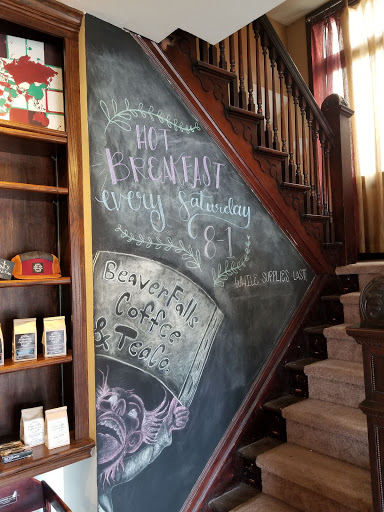 HOT
BREAKFAST
every Saturday
8-1
WHILE SUPPLIES LAST
BeaverFalls
Coffee
& Tea Co.